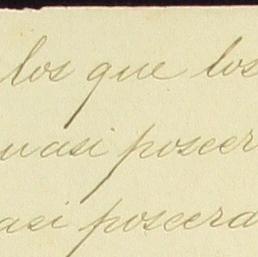 los que los
uasi poseer
asi poseera